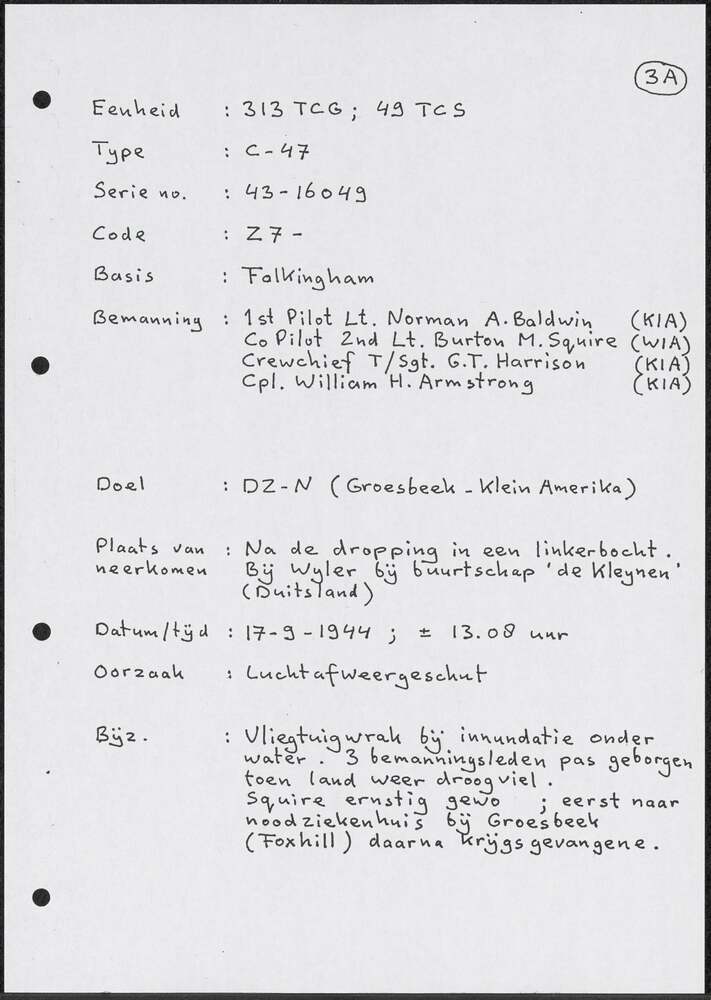 3A
Eenheid : 313 TCG ; 49 TCS
Type : C-47
Serie no. : 43-16049
Code : Z7-
Basis : Folkingham
Bemanning : 1st Pilot Lt. Norman A. Baldwin (KIA)
Co Pilot 2nd Lt. Burton M. Squire (WIA)
Crewchief T/Sgt. G.T. Harrison (KIA)
Cpl. William H. Armstrong (KIA)
Doel : DZ-N (Groesbeek - Klein Amerika)
Plaats van : Na de dropping in een linkerbocht.
neerkomen Bij Wyler bij buurtschap 'de Kleynen'
(Duitsland)
Datum/tijd : 17-9-1944 ; ± 13.08 uur
Oorzaak : Luchtafweergeschut
Bijz. : Vliegtuigwrak bij innundatie onder
water. 3 bemanningsleden pas geborgen
toen land weer droogviel.
Squire ernstig gewo ; eerst naar
noodziekenhuis bij Groesbeek
(Foxhill) daarna krijgsgevangene.